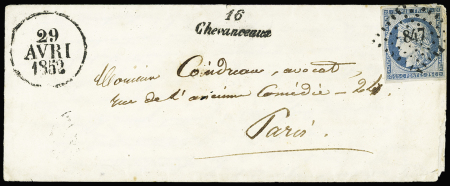 29
AVRI
1852
16
Chevanceaux
847
Monsieur Coindreau, avocat,
rue de l'ancienne Comédie - 24
Paris.